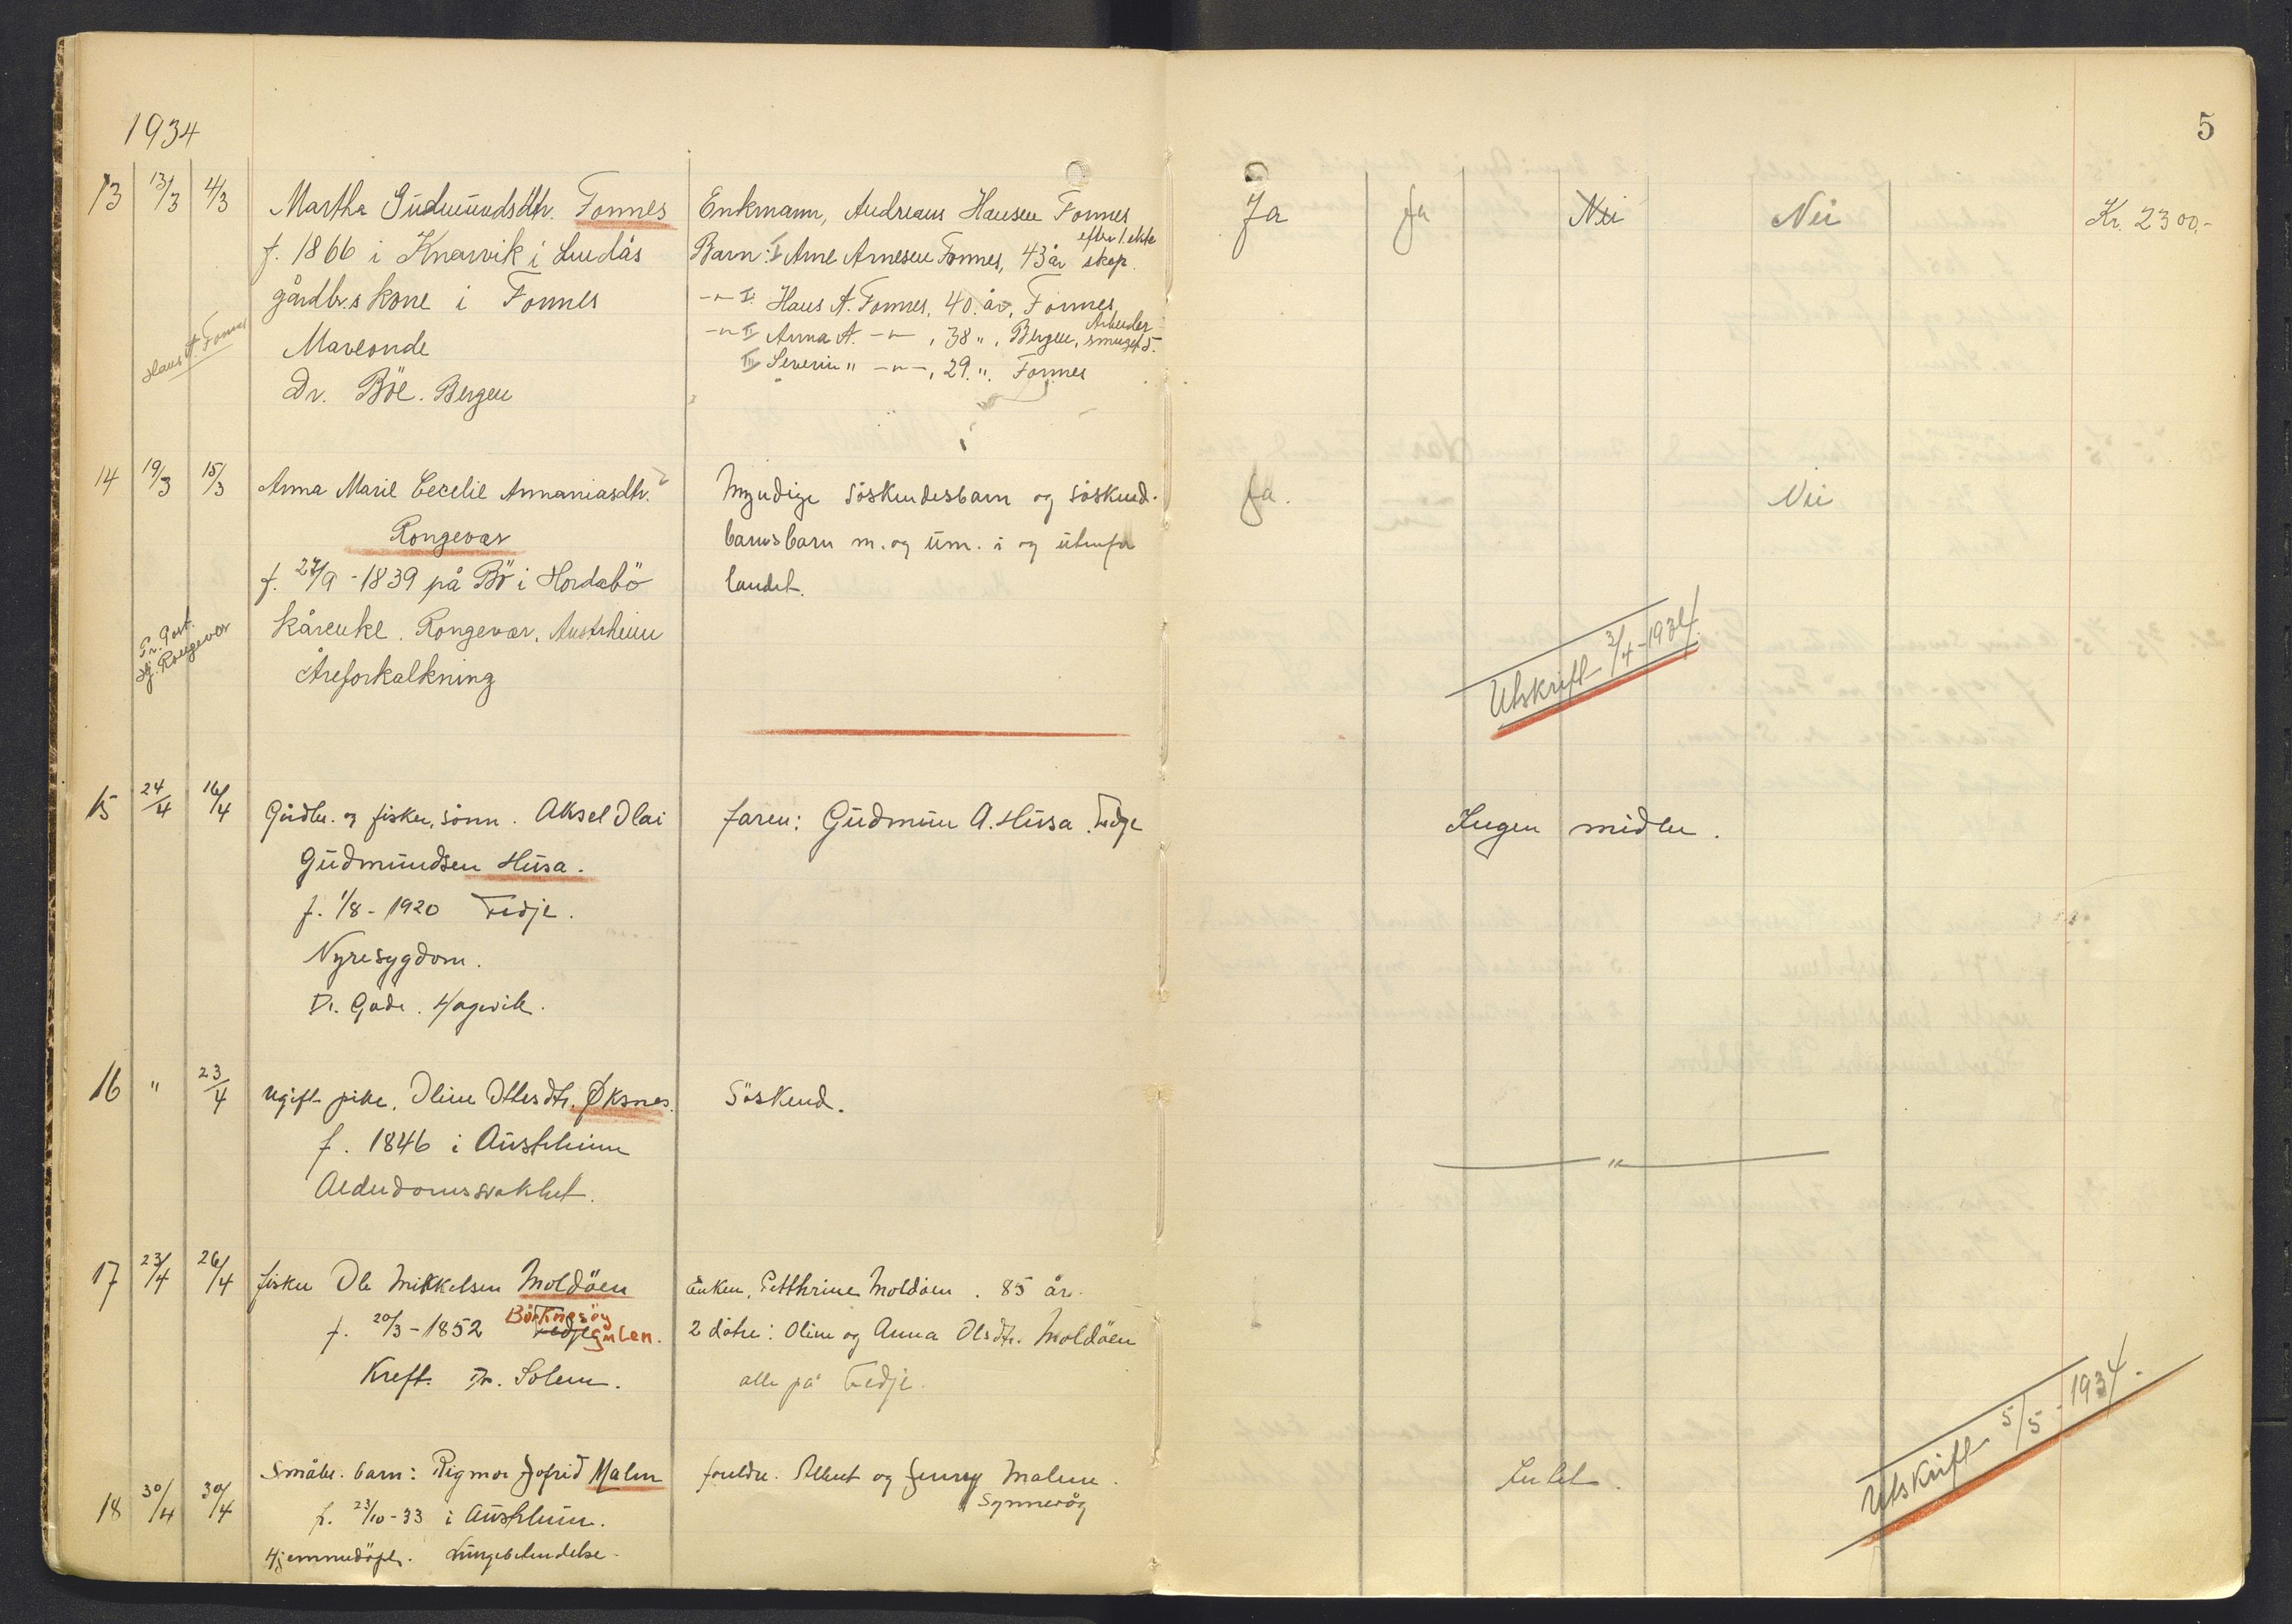 1934
5
13 13/3 4/3 Martha Gudmundsdtr. Fonnes
f. 1866 i Knarvik i Lindås
gårdbr.s kone i Fonnes
Maveonde
Dr. Böe. Bergen
Hans A. Fonnes
Enkmann, Andreas Hansen Fonnes
efter 1. ekte
Barn: I Arne Arnesen Fonnes, 43 år skap.
-"- II Hans A. Fonnes, 40. år, Fonnes
Arbeider
-"- II Anna A. -"-, 38 ", Bergen, smuget 5.
III Severin " -"-, 29. ". Fonnes
Ja Ja Nei Nei Kr. 2300,-
14 19/3 15/3 Anna Marie Cecelie Annaniasdtr.
Rongevær
f. 27/9 - 1839 på Bö i Hordabö
kårenke. Rongevær, Austrheim
Åreforkalkning
Pr. Post.
Rongevær
Myndige söskendesbarn og söskend.
barnsbarn m. og um. i og utenfor
landet.
Ja. Nei
Utskrift 3/4-1934.
15 24/4 16/4 Gårdbr. og fisker, sönn. Aksel Olai
Gudmundsen Husa.
f. 1/8 - 1920 Fedje.
Nyresygdom.
Dr. Gade. Hagevik.
faren: Gudmun A. Husa. Fedje
Ingen midler.
16 " 23/4 Ugift pike. Oline Ottesdtr. Øksnes.
f. 1846 i Austrheim
Alderdomssvakhet.
Söskend.
"
17 23/4 26/4 fisker Ole Mikkelsen Moldöen
f. 20/3 - 1852 Fedje Börknesöy Gulen.
Kreft. Dr. Solem.
Enken, Petthrine Moldöen. 85 år.
2 dötre: Oline og Anna Olsdtr. Moldöen
alle på Fedje.
18 30/4 30/4 Småbr. barn: Rigmor Jofrid Malm
f. 23/10-33 i Austrheim.
Hjemmedöpt. Lungebetendelse.
foreldre. Albert og Jenny Malm.
Synnevåg
Intet.
Utskrift 5/5-1934.